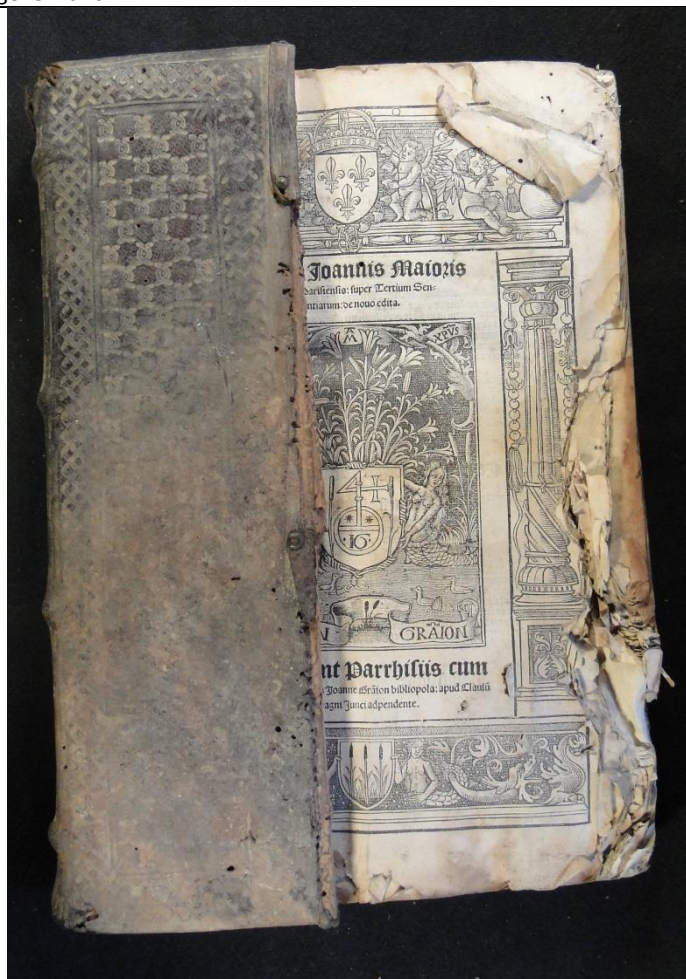 Joannis Maioris
Parisiensia: super Tertium Sen-
ntiarum: de nouo edita.
XPVS
14
16
N GRAION
nt Parrhisiis cum
Joanne Grāion bibliopola: apud Clausū
agni Junci adpendente.